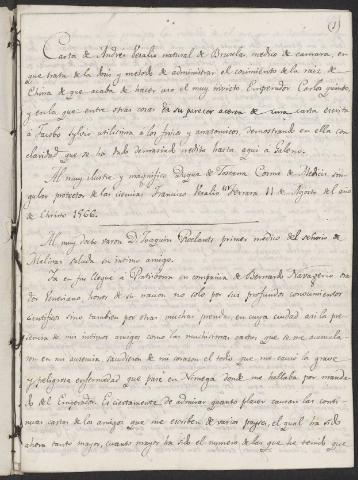 (1)
Carta de Andres Vesalio natural de Bruselas medico de camara, en
que trata de la dosis y metodo de administrar el cocimiento de la raiz de
China de que acaba de hacer uso el muy invicto Emperador Carlos quinto,
y en la que entre otras cosas da su parecer acerca de una carta escrita
á Jacobo Sylvio utilisima a los fisicos y anatomicos demostrando en ella con
claridad que se ha dado demasiado credito hasta aqui a Galeno.
Al muy ilustre y magnifico Duque de Toscana Cosme de Medicis sin-
gular protector de las ciencias Francisco Vesalio Ferrara 11 de Agosto del año
de Christo 1566.
Al muy docto varon D. Joaquin Roelants primer medico del señorio de
Malinas saluda su intimo amigo.
Ya en fin llegue a Ratisbona en compañia de Bernardo Navagerio ora-
dor Veneciano, honor de su nacion no solo por sus profundos conocimientos
cientificos sino tambien por otras muchas prendas, en cuya ciudad asi la pre-
sencia de mis intimos amigos como las muchisimas cartas que se me acumula-
ron en mi ausencia, sacudieron de mi corazon el tedio que me causó la grave
y peligrosa enfermedad que pase en Nimega donde me hallaba por manda-
do del Emperador. Es ciertamente de admirar quanto placer causan las conti-
nuas cartas de los amigos que me escriben de varios payses, el qual ha sido
ahora tanto mayor, cuanto mayor ha sido el numero de las que he tenido que